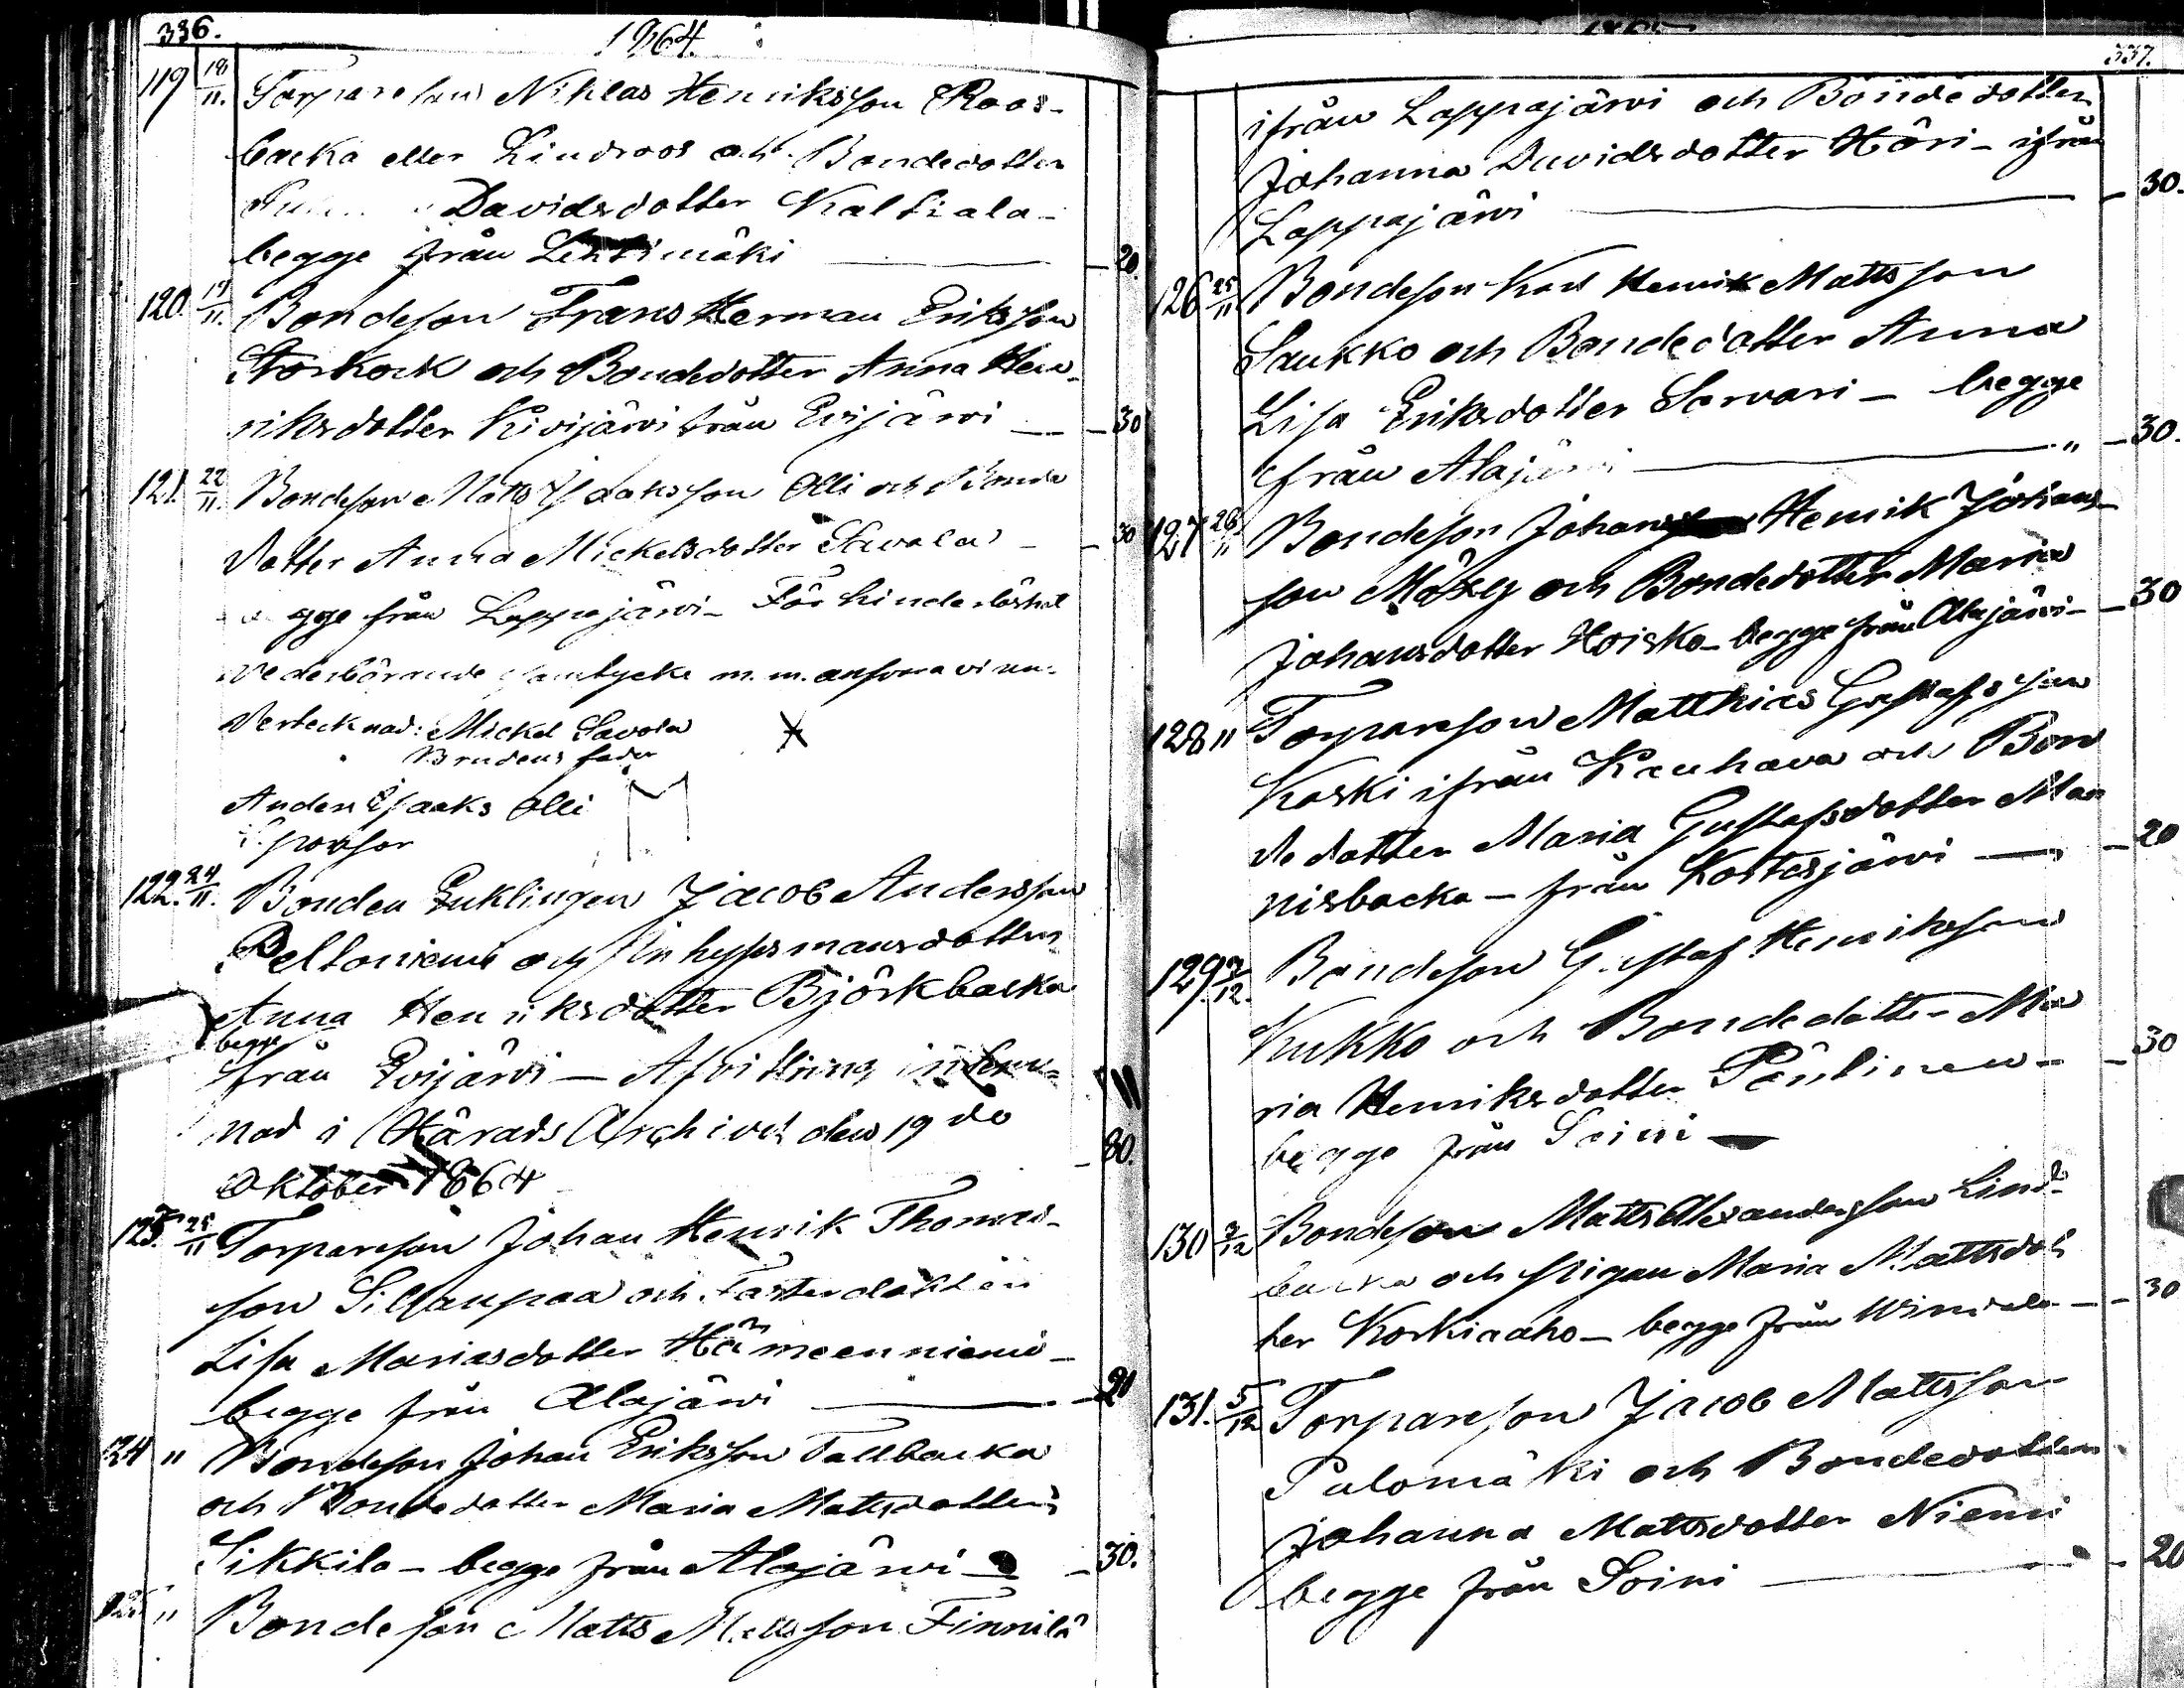 336.
1864.
119 18/11. Torpareson Niklas Henriksson Roos-
backa eller Lindroos och Bondedotter
Davidsdotter Kaltiala-
begge från Lehtimäki — 20.
120. 19/11. Bondeson Frans Herman Eriksson
Storkock och Bondedotter Anna Hen-
riksdotter Kivijärvi från Evijärvi — 30
121. 22/11. Bondeson Matts Isaksson Olli och Bonde
dotter Anna Mickelsdotter Savola — 30
begge från Lappajärvi - För hinderlöshet
vederbörande samtycke m. m. ansvara vi un-
dertecknad: Mickel Savola
Brudens fader
Anders Isaaks Olli
Sponsor
122. 24/11. Bonden Enklingen Jacob Andersson
Peltoniemi och Inhysesmansdotter
Anna Henriksdotter Björkbacka
begge
från Evijärvi — Afvittring inläm-
nad i Härads Archivet den 19de
Oktober 1864 — 80.
123. 25/11 Torpareson Johan Henrik Thomas-
son Sillanpää och Fosterdottern
Lisa Mariasdotter Hämeenniemi-
begge från Alajärvi — 20
124 " Bondeson Johan Eriksson Tallbacka
och Bondedotter Maria Mattsdotter
Sikkila - begge från Alajärvi — 30.
125 " Bondeson Matts Mattsson Finnilä
337.
ifrån Lappajärvi och Bondedotter
Johanna Davidsdotter Häri - ifrån
Lappajärvi — 30.
126 25/11 Bondeson Karl Henrik Mattsson
Saukko och Bondedotter Anna
Lisa Eriksdotter Sarvari - begge
från Alajärvi — " — 30.
127 26/11 Bondeson Johan Henrik Johans-
son och Bondedotter Maria
Johansdotter Hoisko - begge från Alajärvi — 30
128 " Torpareson Matthias Gustafsson
Koski ifrån Kauhava och Bon
dedotter Maria Gustafsdotter Man
nisbacka - från Kortesjärvi — 20
129 /12. Bondeson Gustaf Henriksson
Kukko och Bondedotter Ma
ria Henriksdotter — 30
begge från Soini —
130 /12 Bondeson Matts Alexandersson Lind-
backa och pigan Maria Mattsdot
ter Korkiaaho - begge från Windala — 30
131. 5/12 Torpareson Jacob Mattsson
Palomäki och Bondedotter
Johanna Mattsdotter Niemi
begge från Soini — 20